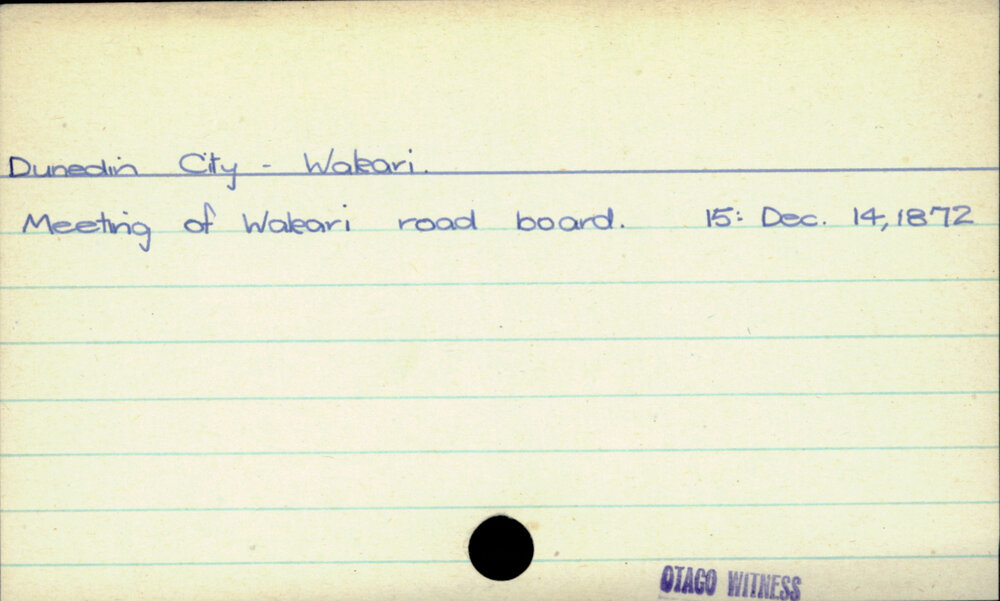 Dunedin City - Wakari.
Meeting of Wakari road board. 15: Dec. 14, 1872
OTAGO WITNESS